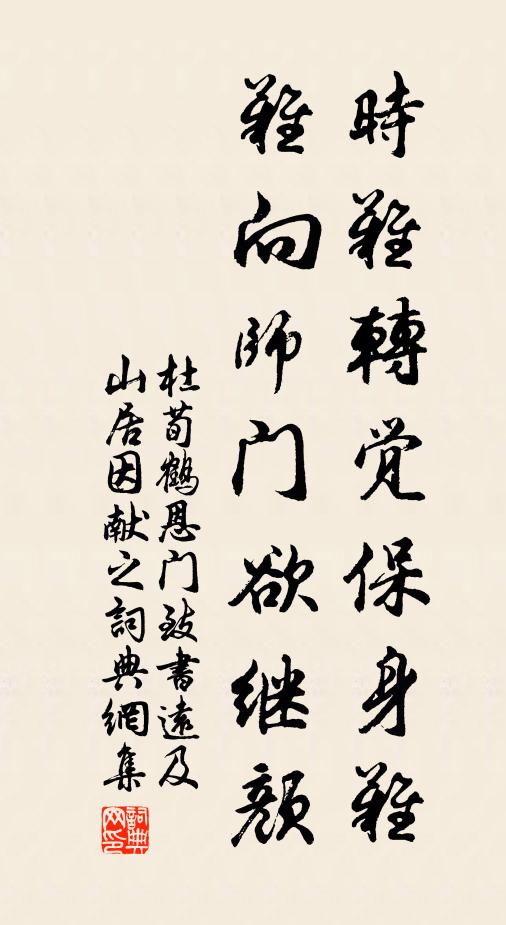 時難轉覚保身難
難向師门欲继顔
杜荀鶴恩门致書遠及
山居因献之詞典網集
詞典
网印